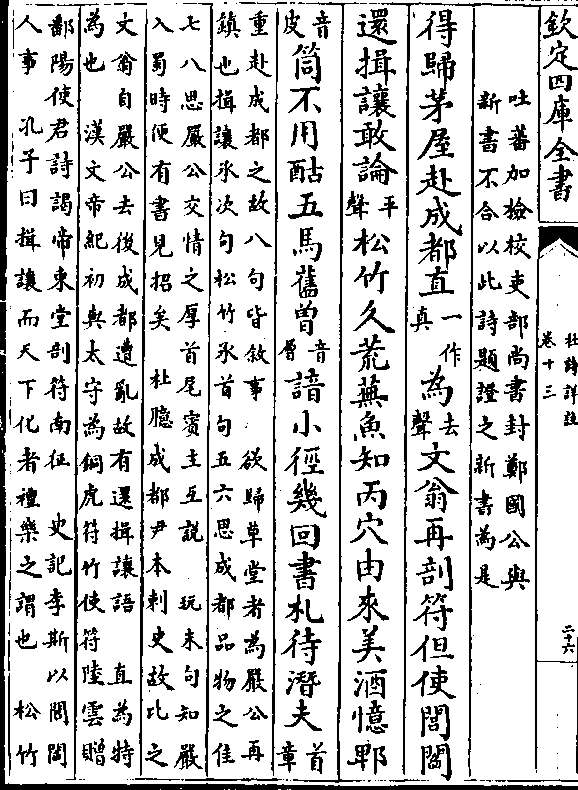 欽定四庫全書
杜詩詳註
卷十三
二十六
吐蕃加檢校吏部尚書封鄭國公與
新書不合以此詩題證之新書為是
得歸茅屋赴成都直一作真為去聲文翁再剖符但使閭閻
還揖讓敢論平聲松竹久荒蕪魚知丙穴由來美酒憶郫
音皮筒不用酤五馬舊曾音層諳小徑幾回書札待潛夫首章
重赴成都之故八句皆敘事 欲歸草堂者為嚴公再
鎮也揖讓承次句松竹承首句五六思成都品物之佳
七八思嚴公交情之厚首尾賓主互說 玩末句知嚴
入蜀時便有書見招矣 杜臆成都尹本刺史故比之
文翁自嚴公去後成都遭亂故有還揖讓語 直為特
為也 漢文帝紀初與太守為銅虎符竹使符陸雲贈
鄱陽使君詩謁帝東堂剖符南征 史記李斯以閭閻
人事 孔子曰揖讓而天下化者禮樂之謂也 松竹